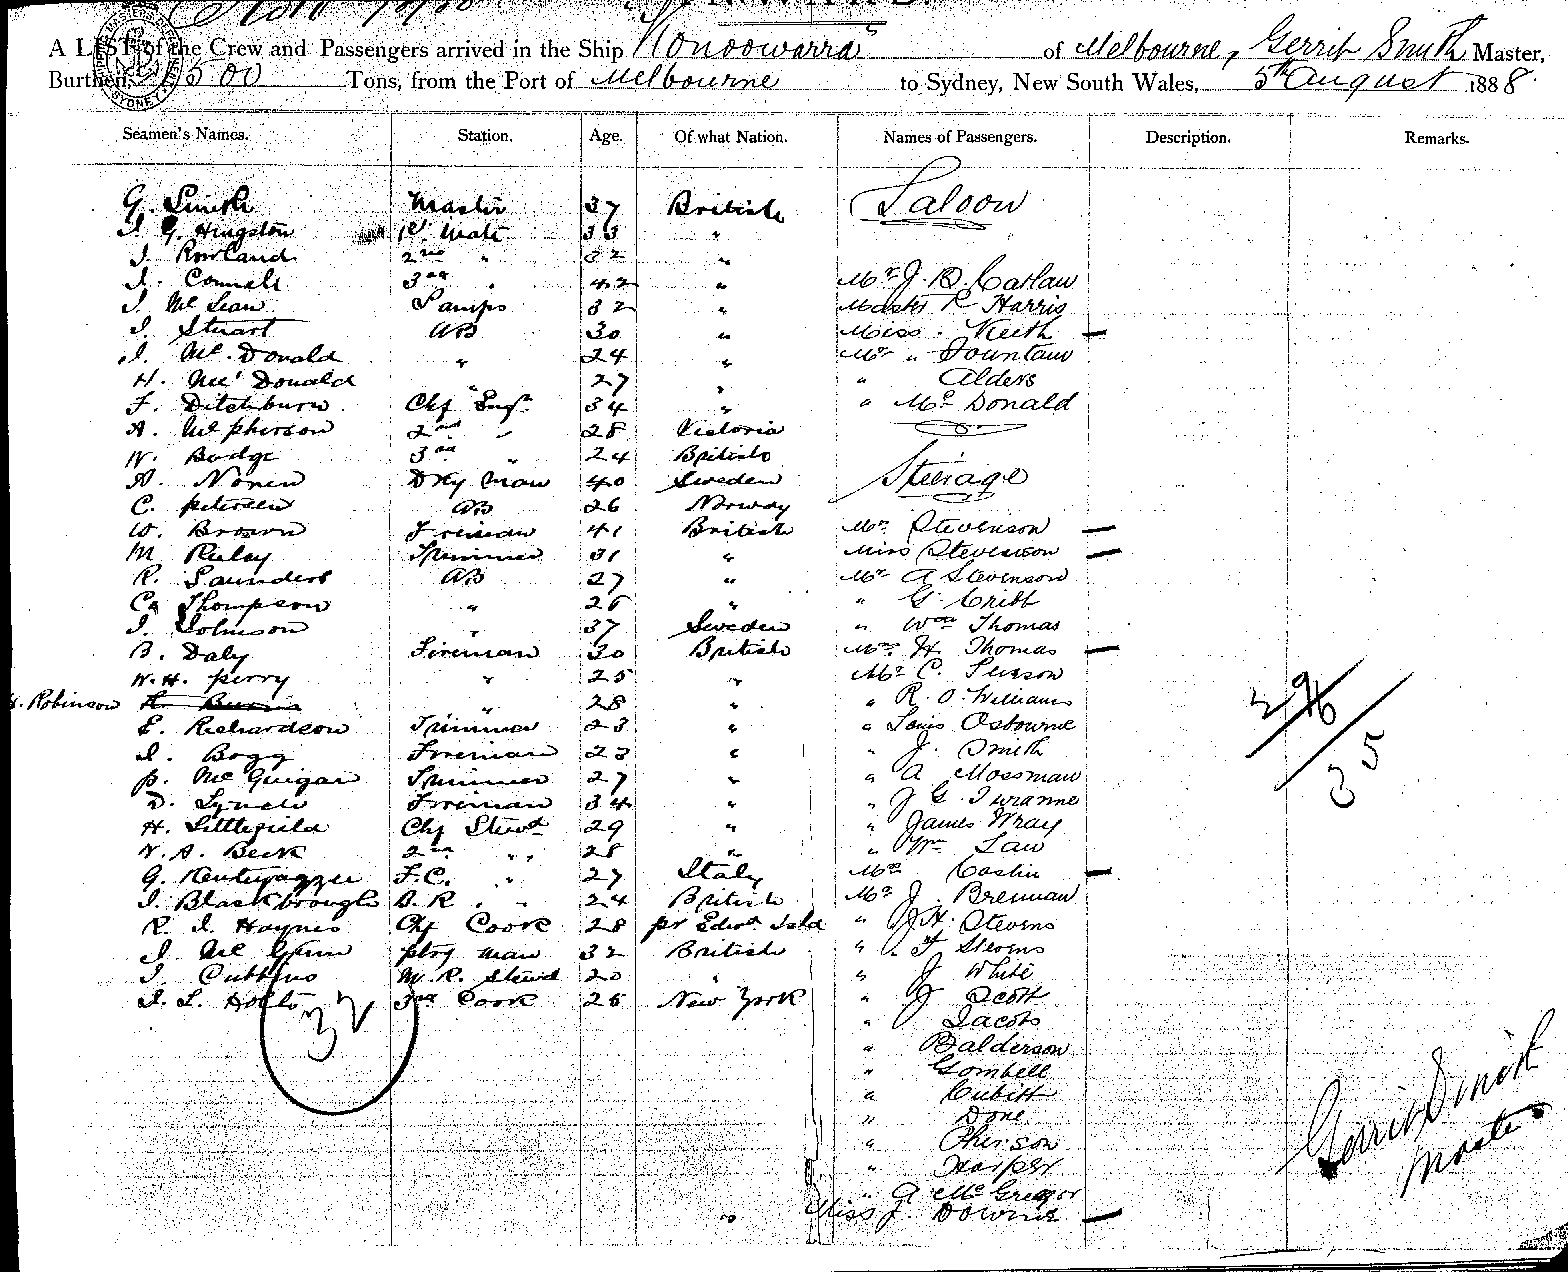 A LIST of the Crew and Passengers arrived in the Ship Konoowarra of Melbourne, Gerrit Smith Master,
Burthen, 1500 Tons, from the Port of Melbourne to Sydney, New South Wales, 5th August 1888.
Seamen's Names. Station. Age. Of what Nation. Names of Passengers. Description. Remarks.
G. Smith Master 37 British Saloon
J. G. Hingston 1st Mate 33 "
J. Rowland 2nd " 32 "
J. Connell 3rd " 42 " Mr J. B. Carlaw
J. McLean Lamps 32 " Master R Harris
J. Stuart AB 30 " Miss Keith —
J. McDonald " 24 " Mr " Fountain
H. McDonald " 27 " " Alders
F. Ditchburn Chf Engr 34 " " McDonald
A. McPherson 2nd " 28 Victoria
W. Budge 3rd " 24 British
A. Noren Dky man 40 Sweden Steerage
C. Petersen AB 26 Norway
W. Brown Fireman 41 British Mrs Stevenson —
M Ruley Trimmer 31 " Miss Stevenson —
R. Saunders AB 27 " Mr A Stevenson
C. Thompson " 26 " " G. Cribb
J. Johnson " 37 Sweden " Wm Thomas
B. Daly Fireman 30 British Mrs H. Thomas —
W. H. Perry " 25 " Mr C.
H. Robinson " 28 " " R. O. Williams
E. Richardson Trimmer 23 " " Louis Osbourne
J. Bogg Fireman 23 " " J. Smith
P. McGuigan Trimmer 27 " " A Mossman
D. Lynch Fireman 34 " " J G.
H. Littlefield Chf Stewd 29 " " James Wray
W. A. Beck 2nd " 28 " " Wm Law
G. F.C. " 27 Italy Mrs Costin —
J. Blackbrough B.R. " 24 British Mr J. Brennan
R. J. Haynes Chf Cook 28 Pr Edwd Isld " J H. Stevens
J McGinn ptry man 32 British " F Stevens
J. Cubbins M. R. Stewd 20 " " J White
J. L. Holts 3rd Cook 26 New York " J Scott
" Jacobs
" Balderson
" Gombell
" Cubitt
" Done
" Pherson
" Harper
" A McGregor
" Miss J. Downie —
32
29
6
35
Gerrit Smith
Master